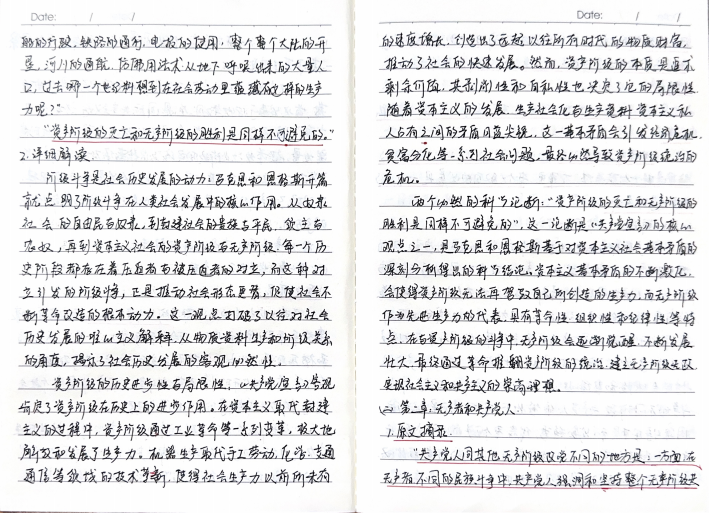 Date: / /
船的行驶，铁路的通行，电报的使用，整个整个大陆的开
垦，河川的通航，仿佛用法术从地下呼唤出来的大量人
口，过去哪一个世纪料想到在社会劳动里蕴藏有这样的生产
力呢？"
"资产阶级的灭亡和无产阶级的胜利是同样不可避免的。"
2.详细解读
阶级斗争是社会历史发展的动力：马克思和恩格斯开篇
就点明了阶级斗争在人类社会发展中的核心作用。从奴隶
社会的自由民与奴隶，到封建社会的贵族与平民、领主与
农奴，再到资本主义社会的资产阶级与无产阶级，每一个历
史阶段都存在着压迫者与被压迫者的对立，而这种对
立引发的阶级斗争，正是推动社会形态更替，促使社会不
断革命改造的根本动力。这一观点打破了以往对社会
历史发展的唯心主义解释，从物质资料生产和阶级关系
的角度，揭示了社会历史发展的客观必然性。
资产阶级的历史进步性与局限性：《共产党宣言》客观
肯定了资产阶级在历史上的进步作用。在资本主义取代封建
主义的过程中，资产阶级通过工业革命等一系列变革，极大地
解放和发展了生产力。机器生产取代手工劳动，化学、交通
通信等领域的技术革新，使得社会生产力以前所未有
Date: / /
的速度增长，创造出了远超以往所有时代的物质财富，
推动了社会的快速发展。然而，资产阶级的本质是追求
剩余价值，其剥削性和自私性也决定了它的局限性
随着资本主义的发展，生产社会化与生产资料资本主义私
人占有之间的矛盾日益尖锐，这一基本矛盾会引发经济危机、
贫富分化等一系列社会问题，最终必然导致资产阶级统治的
危机。
两个必然的科学论断："资产阶级的灭亡和无产阶级的
胜利是同样不可避免的"，这一论断是《共产党宣言》的核心
观点之一，是马克思和恩格斯基于对资本主义社会基本矛盾的
深刻分析得出的科学结论。资本主义基本矛盾的不断激化，
会使得资产阶级无法再驾驭自己所创造的生产力，而无产阶级
作为先进生产力的代表，具有革命性、组织性和纪律性等特
点，在与资产阶级的斗争中，无产阶级会逐渐觉醒，不断发展
壮大，最终通过革命推翻资产阶级的统治，建立无产阶级政权
实现社会主义和共产主义的崇高理想。
(二)第二章：无产者和共产党人
1.原文摘录
"共产党人同其他无产阶级政党不同的地方是：一方面，在
无产者不同的民族斗争中，共产党人强调和坚持整个无产阶级共